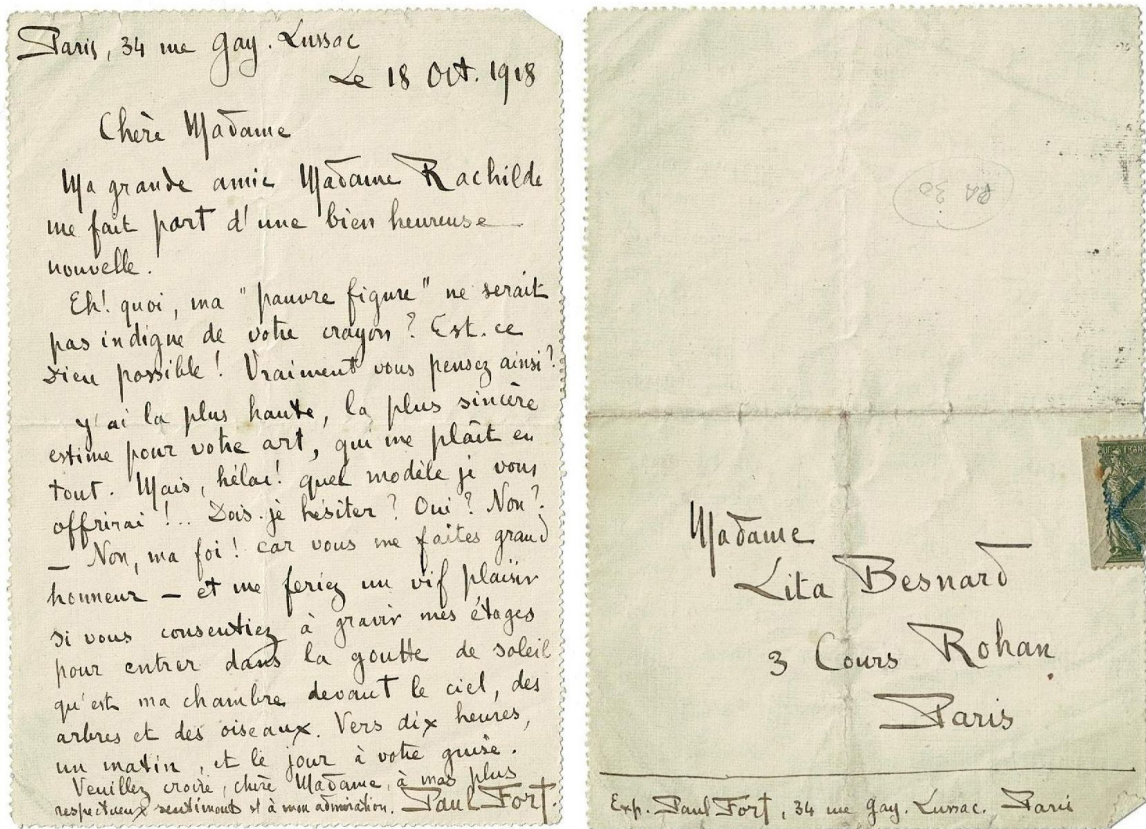 Paris, 34 rue Gay. Lussac
Le 18 Oct. 1918
Chère Madame
Ma grande amie Madame Rachilde
me fait part d'une bien heureuse
nouvelle.
Eh! quoi, ma "pauvre figure" ne serait
pas indigne de votre crayon ? Est-ce
Dieu possible ! Vraiment vous pensez ainsi ?
J'ai la plus haute, la plus sincère
estime pour votre art, qui me plaît en
tout. Mais, hélas! quel modèle je vous
offrirai !.. Dois-je hésiter ? Oui ? Non ?
— Non, ma foi ! car vous me faites grand
honneur — et me feriez un vif plaisir
si vous consentiez à gravir mes étages
pour entrer dans la goutte de soleil
qu'est ma chambre devant le ciel, des
arbres et des oiseaux. Vers dix heures,
un matin, et le jour à votre guise.
Veuillez croire, chère Madame, à mes plus
respectueux sentiments et à mon admiration. Paul Fort.
RA 30
Madame
Lita Besnard
3 Cours Rohan
Paris
Exp. Paul Fort, 34 rue Gay. Lussac. Paris